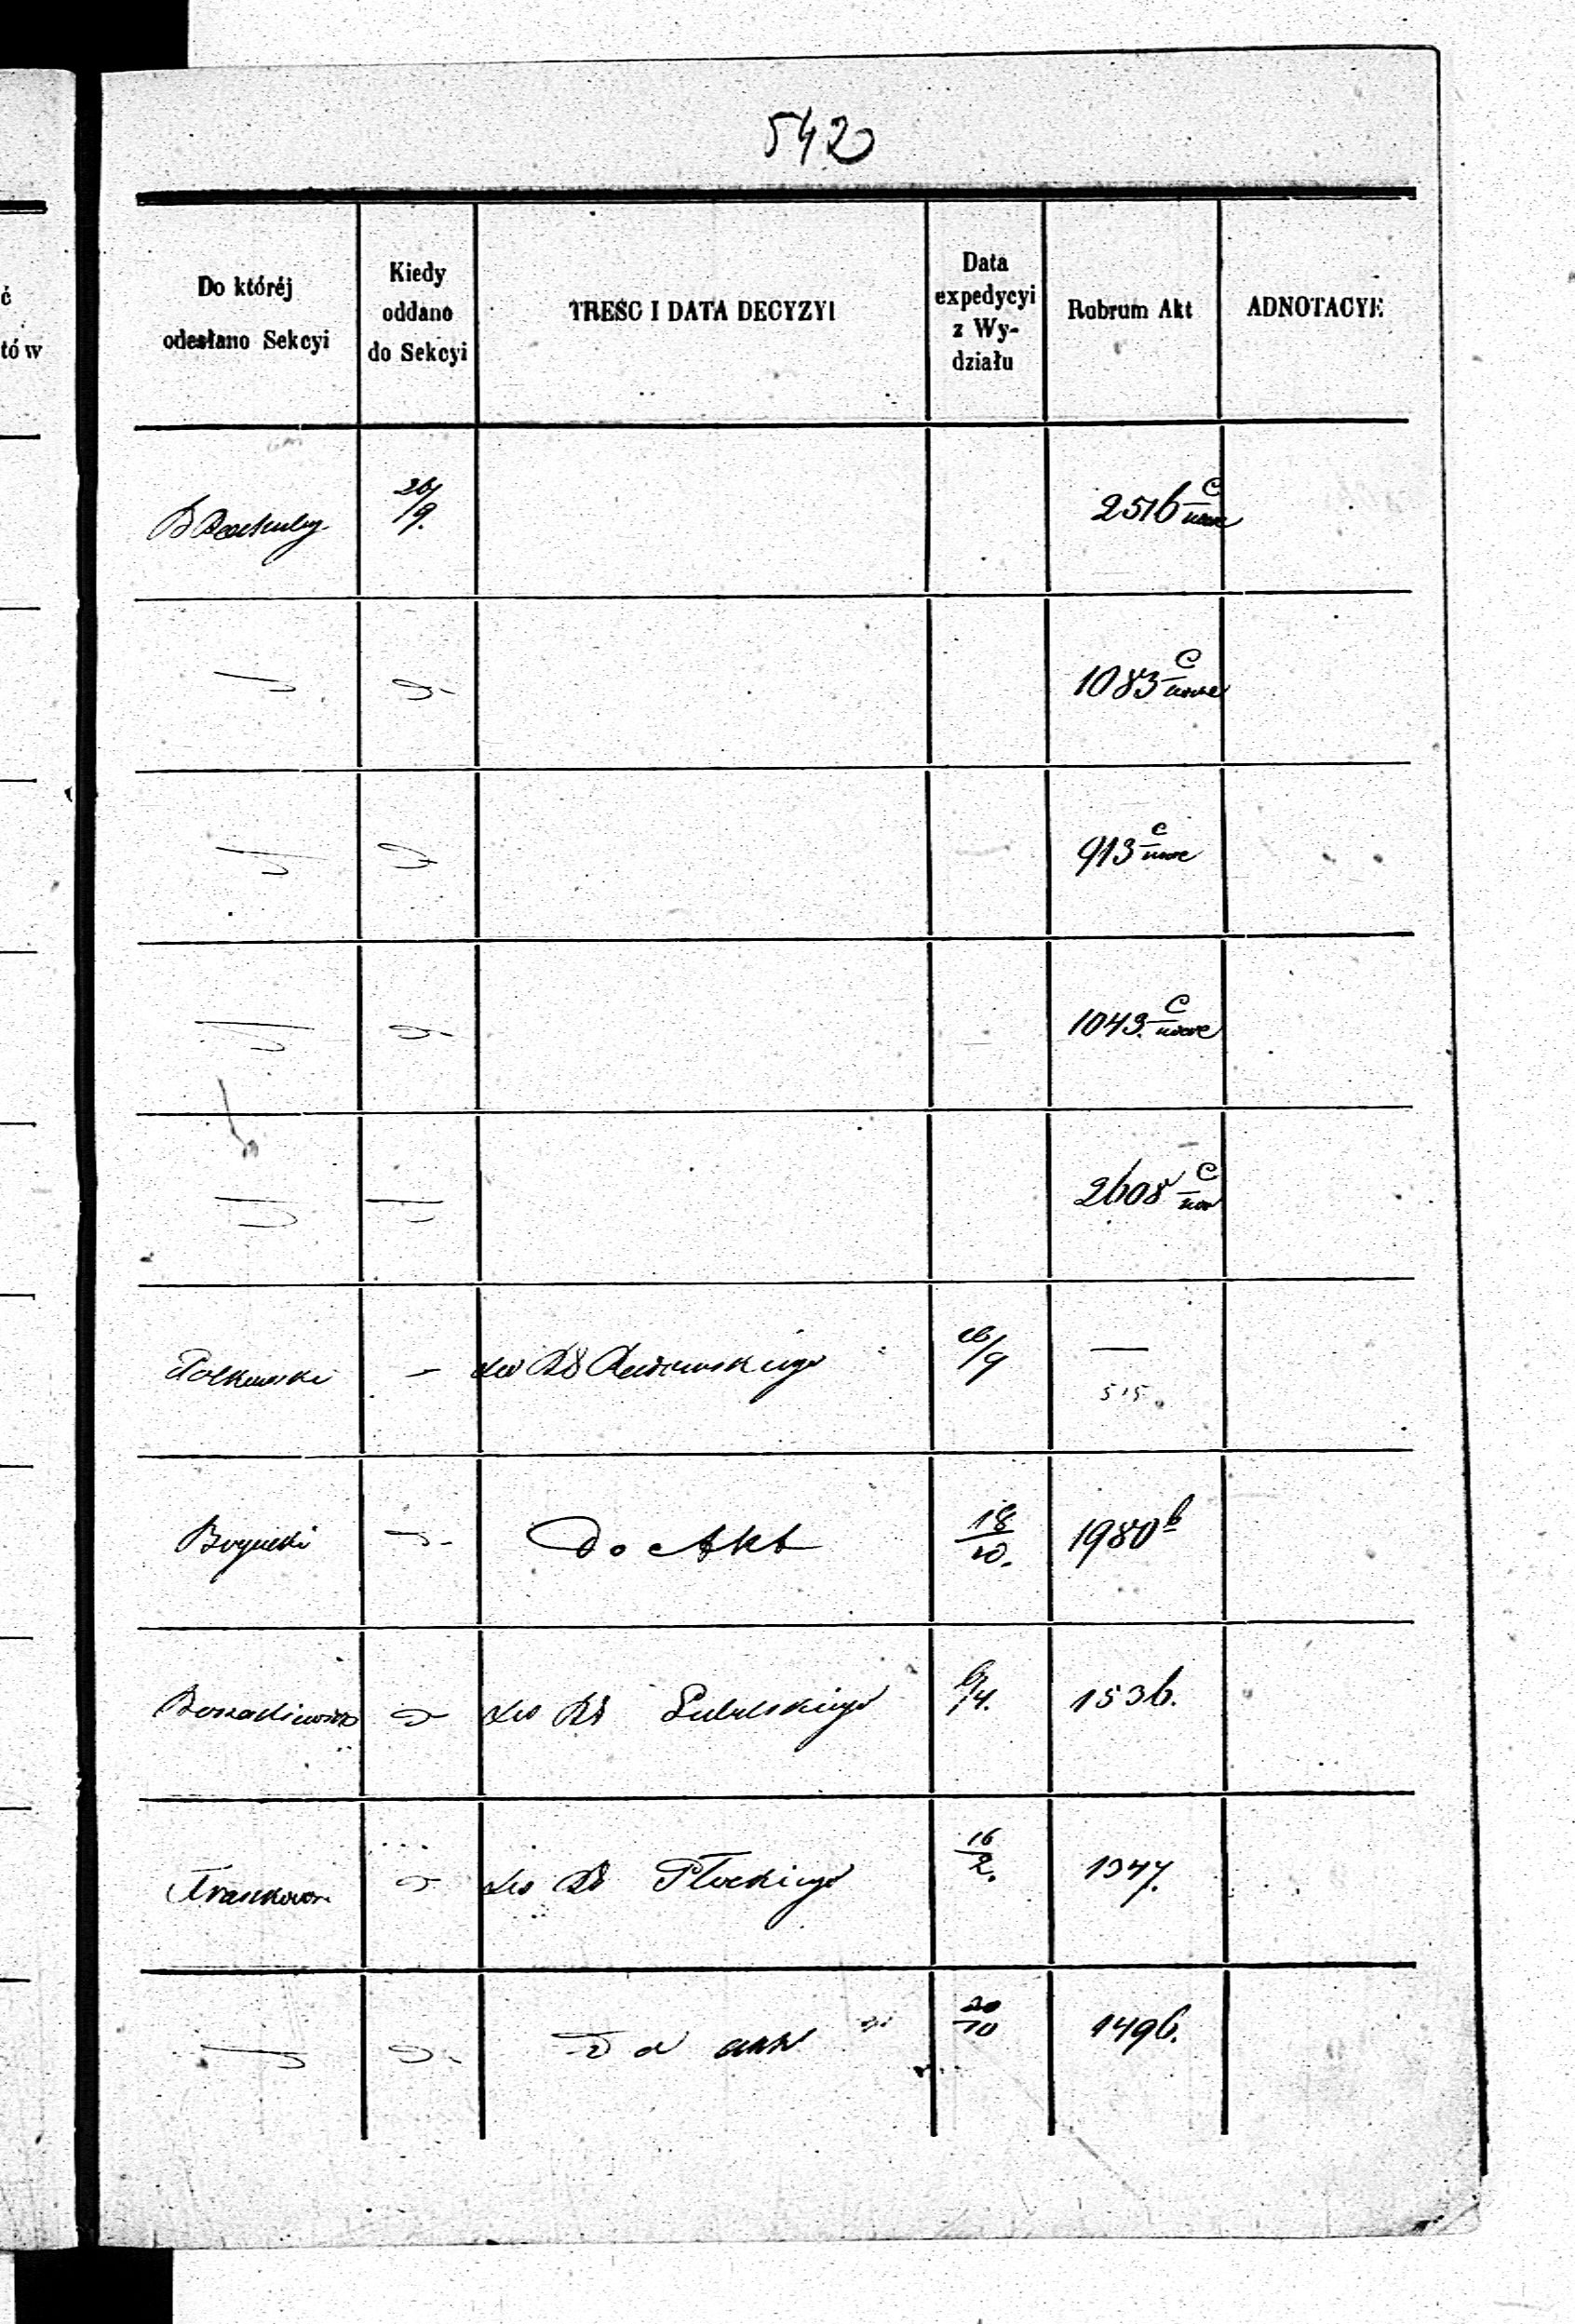 542
ć
tów
Do któréj
odesłano Sekcyi
Kiedy
oddano
do Sekcyi
TREŚĆ I DATA DECYZYI
Data
expedycyi
z Wy-
działu
Rubrum Akt
ADNOTACYE
26/9.
2516 C/nowe
1083 C/nowe
913 C/nowe
1043. C/nowe
2608 C/now
Polkowski
do RG Radomskiego
26/9
—
515.
Bogucki
Do Akt
18/10.
1980 b
do RG Lubelskiego
6/4.
1536.
do RG Płockiego
16/2.
1347.
Do akt
20/10
1496.